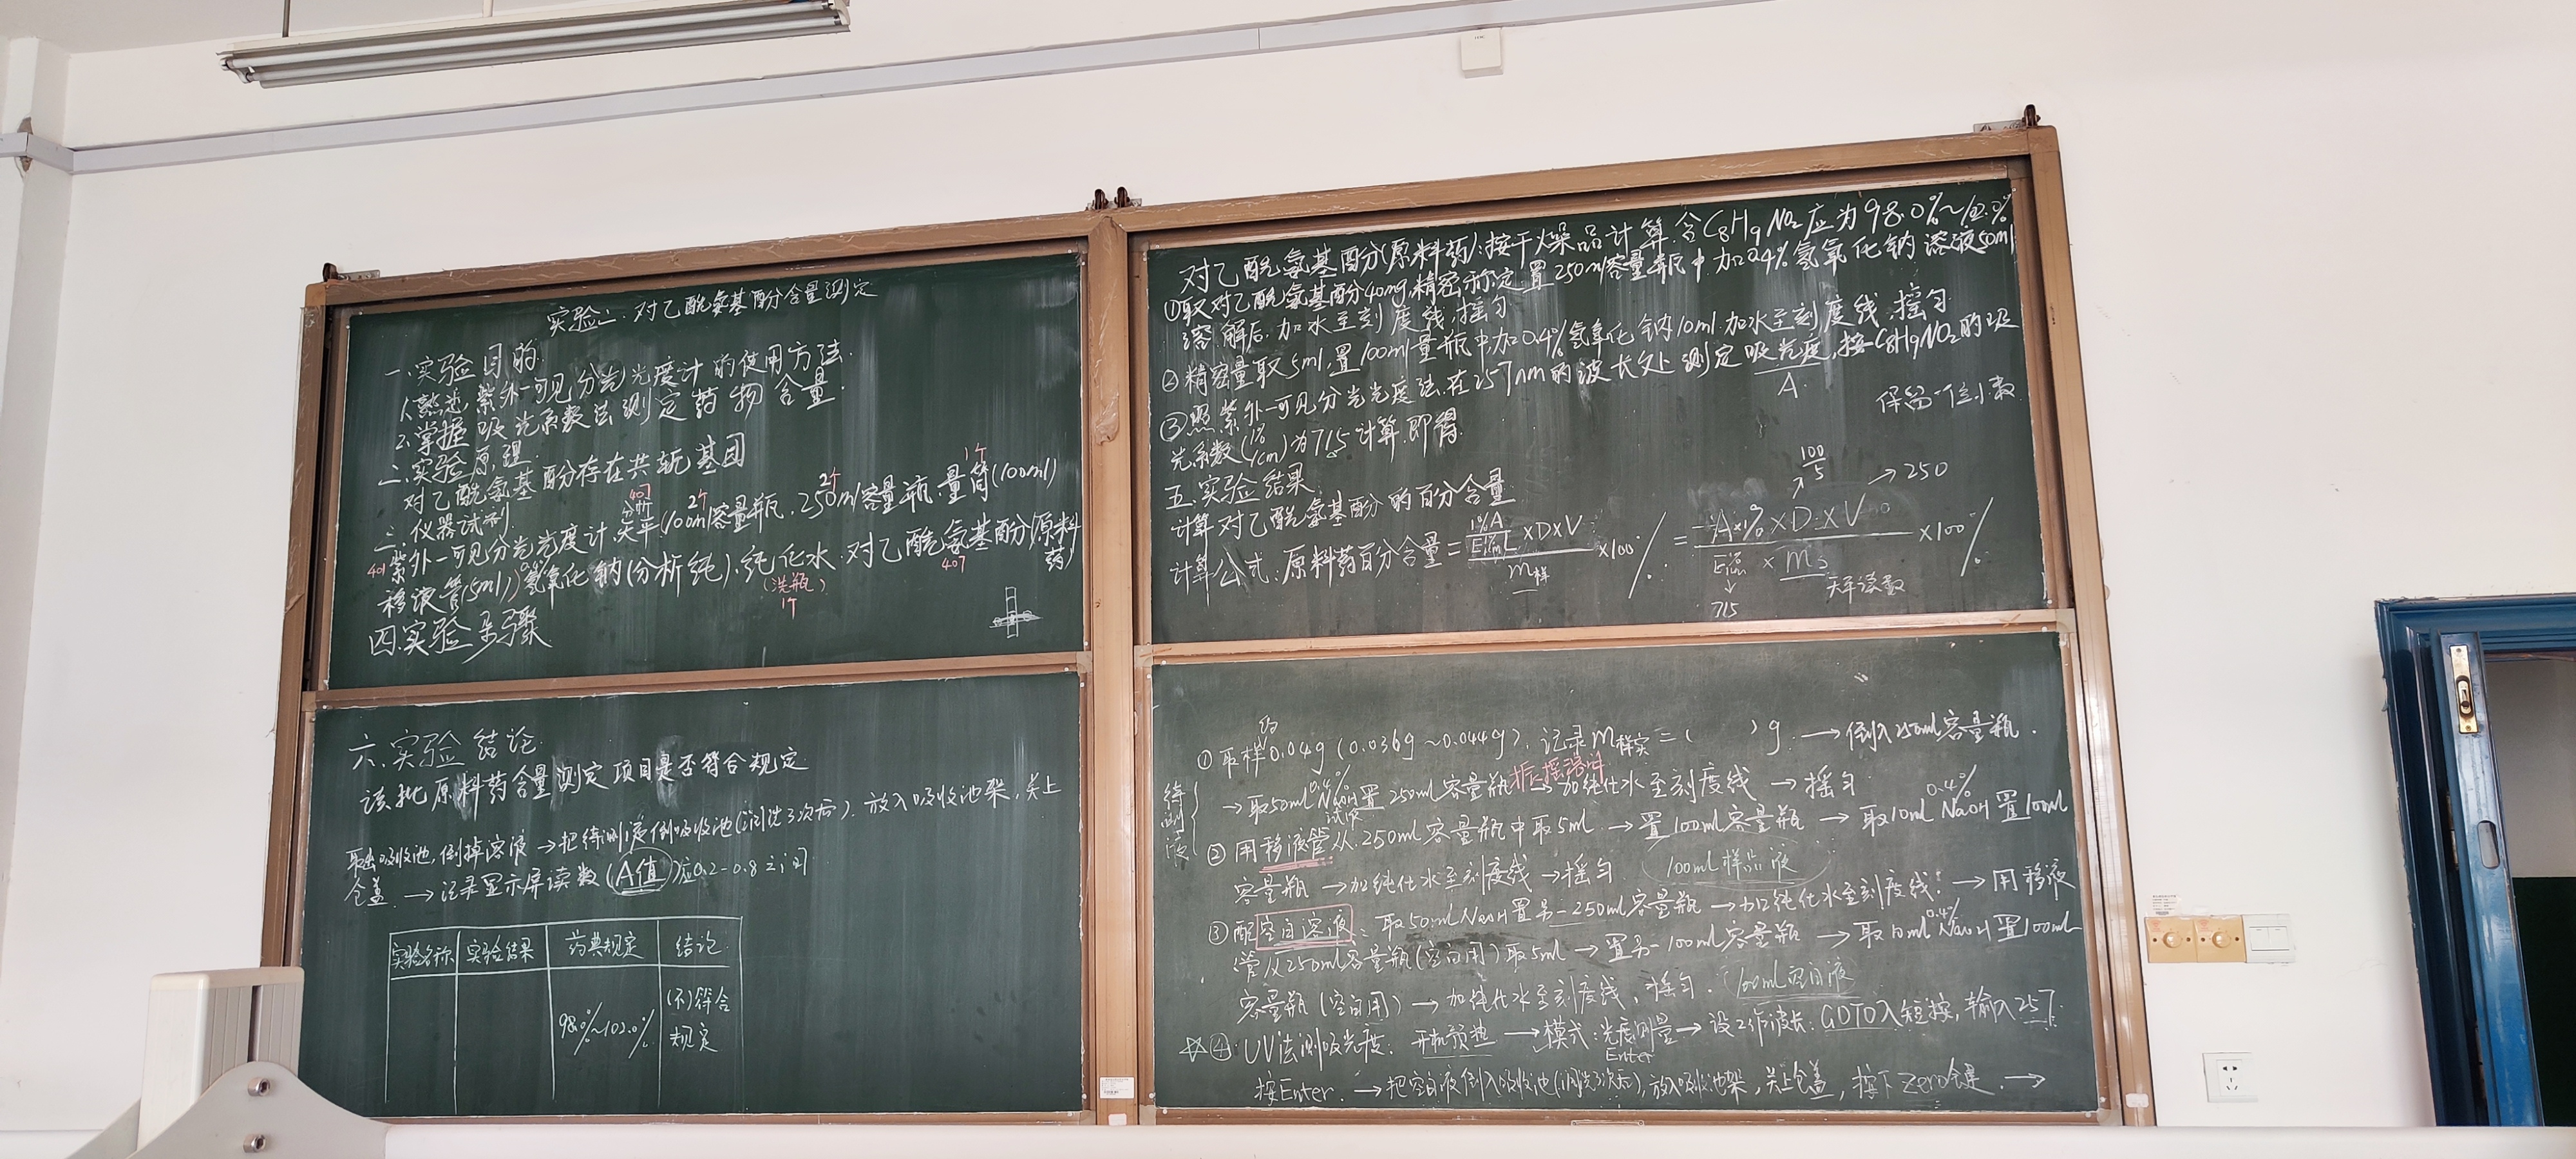 实验二.对乙酰氨基酚含量测定
一.实验目的.
1.熟悉紫外-可见分光光度计的使用方法.
2.掌握吸光系数法测定药物含量.
二.实验原理.
对乙酰氨基酚存在共轭基团
三.仪器试剂.
407 2个 2个 1个
紫外-可见分光光度计.分析天平(100ml容量瓶.250ml容量瓶.量筒(100ml)
401
移液管(5ml))氢氧化钠(分析纯).纯化水.对乙酰氨基酚(原料药)
(洗瓶) 407
1个
四.实验步骤
对乙酰氨基酚(原料药):按干燥品计算.含C8H9NO2应为98.0%~102.0%
①取对乙酰氨基酚40mg,精密称定.置250ml容量瓶中.加0.4%氢氧化钠溶液50ml
溶解后.加水至刻度线,摇匀
②精密量取5ml,置100ml量瓶中,加0.4%氢氧化钠10ml.加水至刻度线.摇匀
③照紫外-可见分光光度法.在257nm的波长处测定吸光度,按C8H9NO2的吸
A.
光系数(1% 1cm)为715计算.即得.
保留一位小数
五.实验结果
计算对乙酰氨基酚的百分含量
100/5 → 250
计算公式:原料药百分含量= ×D×V m样 ×100% = A×1%×D×V × ms ×100%
715 天平读数
六.实验结论.
该批原料药含量测定项目是否符合规定
取出吸收池,倒掉溶液→把待测液倒吸收池(润洗3次后).放入吸收池架,关上
仓盖.→记录显示屏读数(A值)应0.2-0.8之间
实验名称 实验结果 药典规定 结论.
98.0%~102.0% (不)符合规定
待测液
①取样约0.04g(0.036g~0.044g).记录m样实=( )g.→倒入250ml容量瓶.
→取50ml 0.4% NaOH试液置250ml容量瓶→加纯化水至刻度线→摇匀.
②用移液管从250ml容量瓶中取5ml.→置100ml容量瓶→取10ml 0.4% NaOH置100ml
容量瓶→加纯化水至刻度线→摇匀. 100ml样品液
③配空白溶液:取50ml NaOH置另一250ml容量瓶→加纯化水至刻度线!→用移液
管从250ml容量瓶(空白用)取5ml→置另一100ml容量瓶→取10ml 0.4% NaOH置100ml
容量瓶(空白用)→加纯化水至刻度线,摇匀. 100ml空白液
☆④.UV法测吸光度:开机预热→模式:光度测量→设工作波长:GOTO入短按,输入257.
Enter
按Enter.→把空白液倒入吸收池(润洗3次后),放入吸收池架,关上仓盖,按下Zero键.→